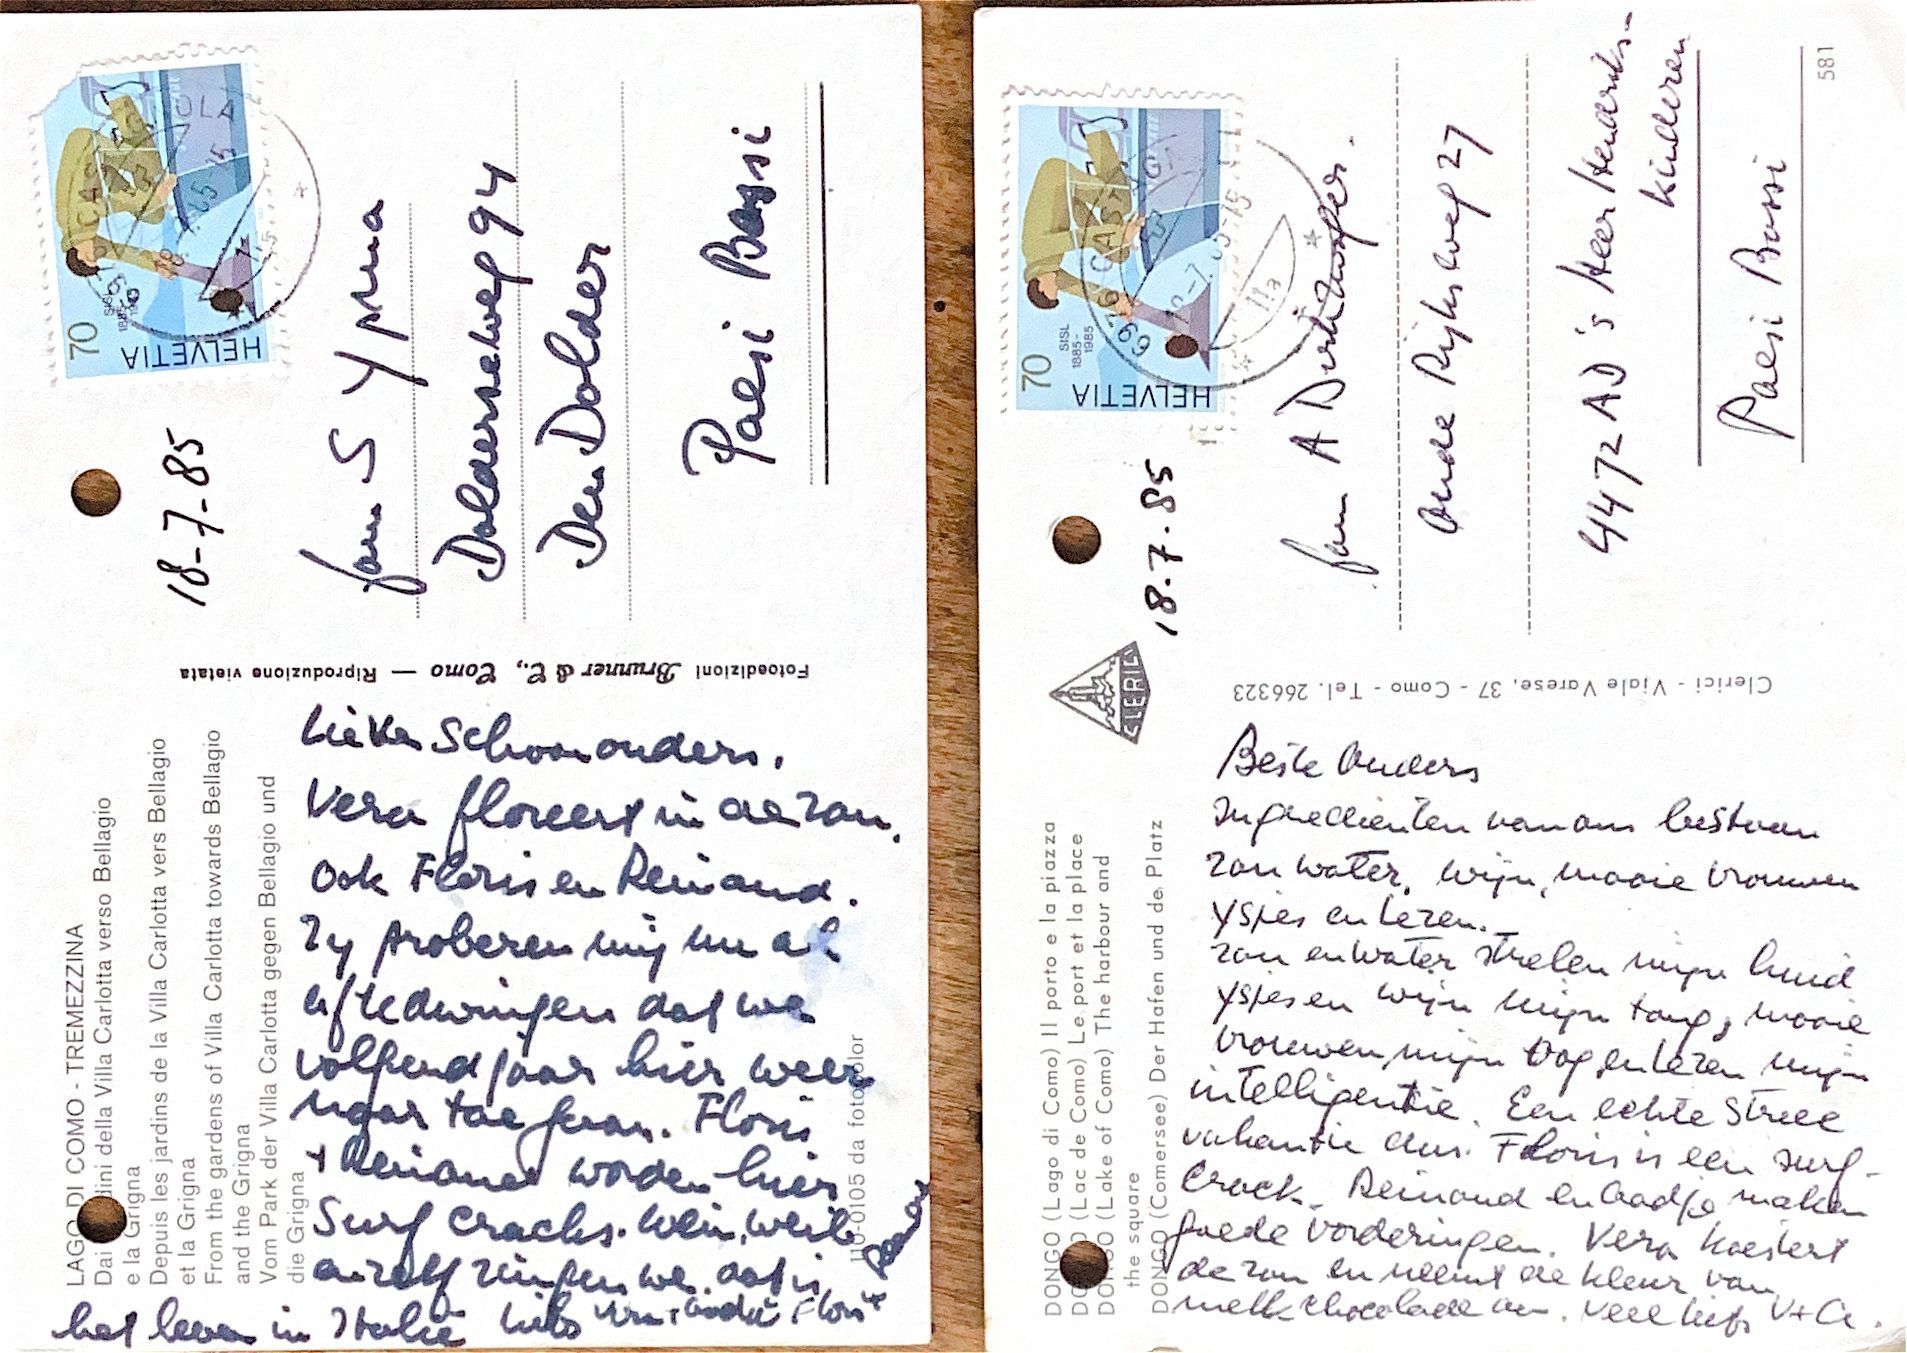 LAGO DI COMO - TREMEZZINA
Dai dini della Villa Carlotta verso Bellagio
e la Grigna
Depuis les jardins de la Villa Carlotta vers Bellagio
et la Grigna
From the gardens of Villa Carlotta towards Bellagio
and the Grigna
Vom Park der Villa Carlotta gegen Bellagio und
die Grigna
18-7-85
70
HELVETIA
SISL
1885-
1985
fam S Ypma
Dolderseweg 94
Den Dolder
Paesi Bassi
Fotoedizioni Brunner & C., Como — Riproduzione vietata
110-0105 da fotocolor
Lieve Schoonouders,
Vera floreert in de zon,
ook Floris en Reinoud.
Zy proberen mij nu al
af te dwingen dat we
volgend jaar hier weer
naar toe gaan. Floris
+ Reinoud worden hier
Surf cracks. Wein, Weib
en zelf zingen we. dat is
het leven in Italië liefs Floris +
DONGO (Lago di Como) Il porto e la piazza
DONGO (Lac de Como) Le port et la place
DONGO (Lake of Como) The harbour and
the square
DONGO (Comersee) Der Hafen und de Platz
18.7.85
70
HELVETIA
SISL
1885-
1985
6976 CASTAGNOLA
CLERICI
fam A
Oude Rijksweg 27
4472 AD 's Heer Hendriks-
kinderen
Paesi Bassi
581
Clerici - Viale Varese, 37 - Como - Tel. 266323
Beste Ouders
Ingredienten van ons bestaan
zon water, wijn, mooie vrouwen
ysjes en lezen.
zon en water strelen mijn huid
ysjes en wijn mijn tong, mooie
vrouwen mijn oog en lezen mijn
intelligentie. Een echte streel
vakantie dus. Floris is een surf-
crack. Reinoud en Aadje maken
goede vorderingen. Vera koestert
de zon en neemt de kleur van
melk chocolade aan. Veel liefs V+A.